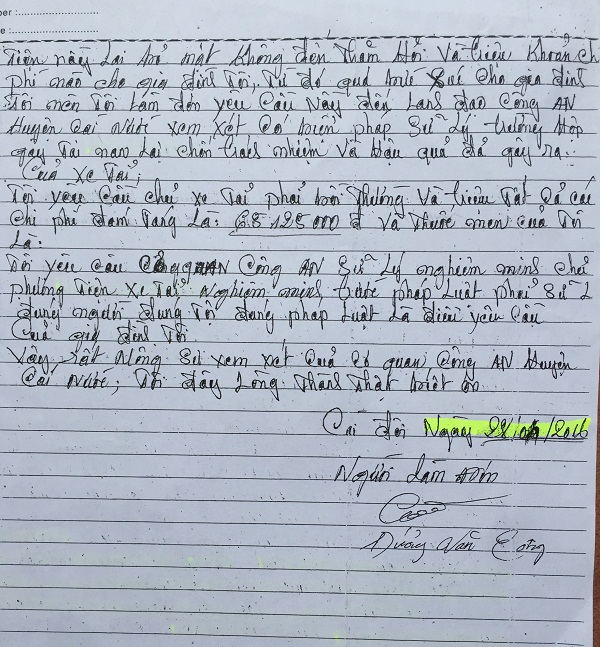 ber :
e :
Tiện nầy Lại trỏ mát Không đến Thăm Hỏi Và tiêu Khoản ch
phí nào cho gia đình Tôi, Từ đó quá bức Xúc cho gia đình
Tôi nên Tôi Làm đơn yêu cầu Này đến Lảnh đạo Công AN
Huyện Cái Nước xem Xét Có biện pháp Sử Lý trường Hợp
gây Tai nạn Lại chốn trách nhiệm Và Hậu quả đả gây ra.
Của Xe Tải;
Tôi yêu Cầu chủ xe Tải phải bồi Thường Và tiêu Tất Cả các
Chi phí đám Tang Là: 68 125 000 đ Và Thuốc men của Tôi
Là:
Tôi yêu Cầu Công AN Sử Lý nghiêm minh chủ
phương Tiện Xe Tải, Nghiêm minh, trước pháp Luật phải Sử L
đúng người đúng Tội đúng pháp Luật Là điều yêu Cầu
Của gia đình Tôi
Vậy rất Mong Sự xem xét Của Cơ quan Công AN Huyện
Cái Nước; Tôi đây Lòng Thành Thật biết ơn
Cái đôi Ngày /2016
Người Làm đơn
Dương Văn